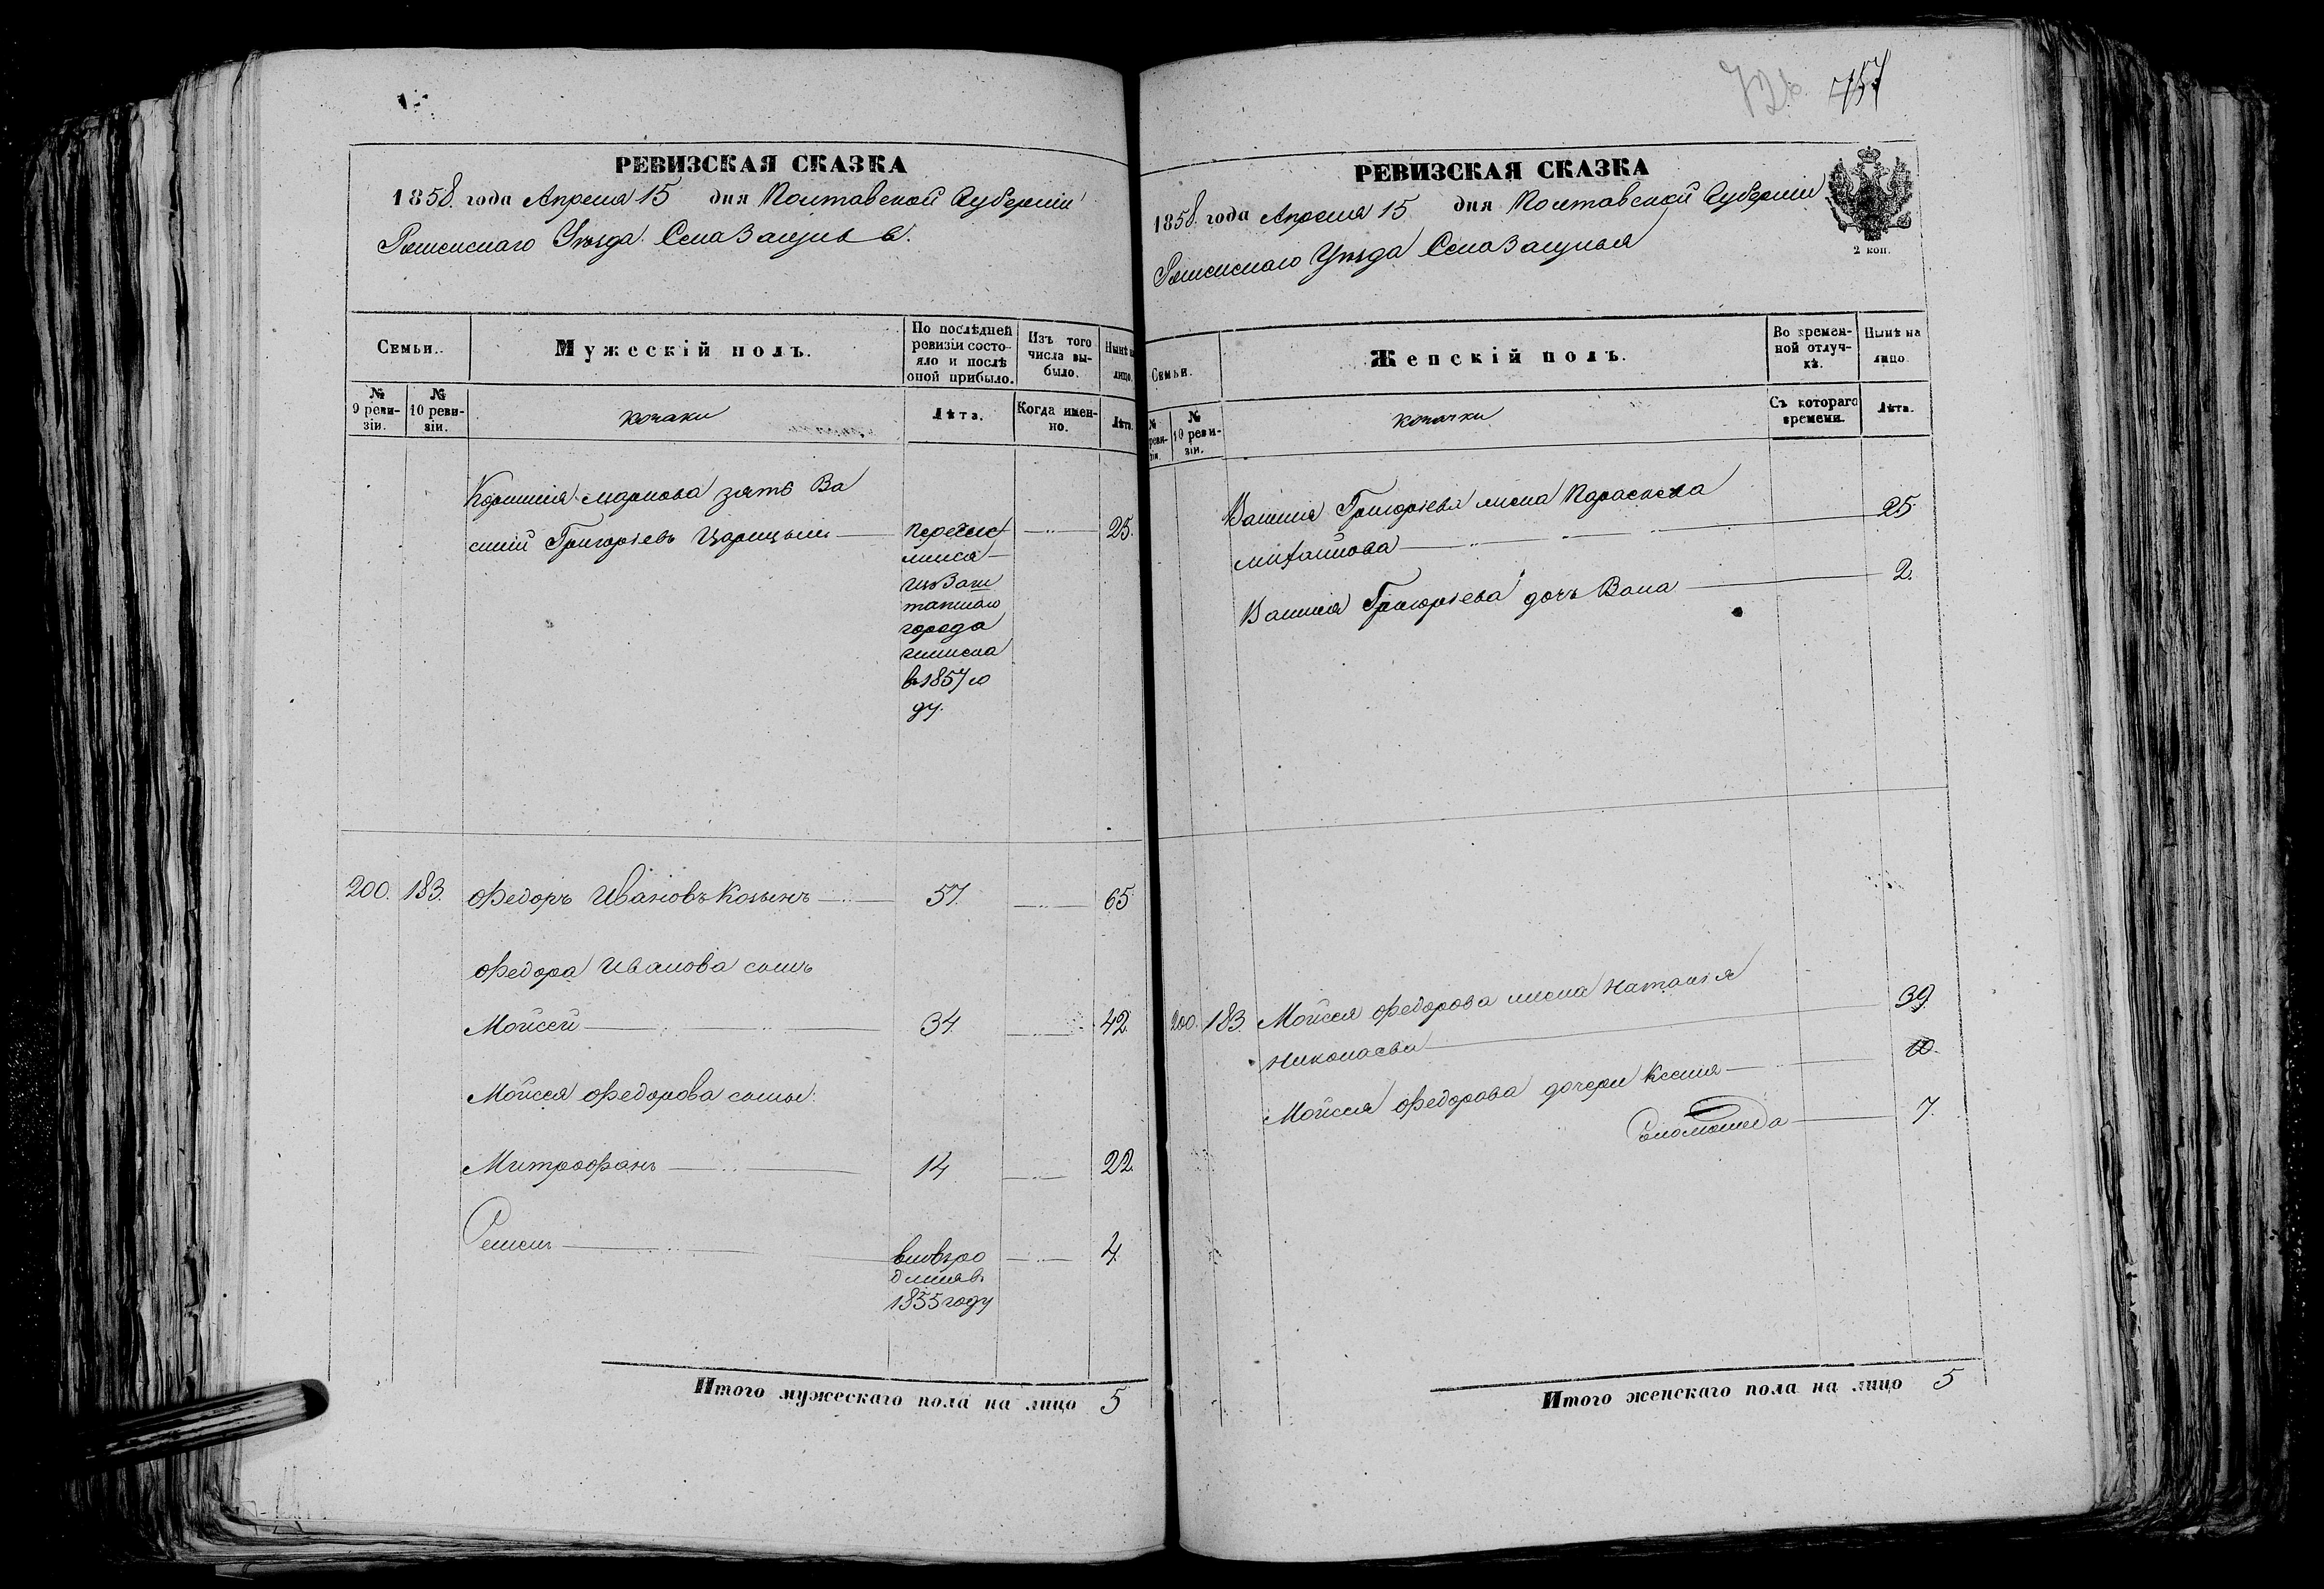 726. 757
РЕВИЗСКАЯ СКАЗКА
1858. года Апреля 15 дня Полтавской Губернии
Роменскаго Уезда Села
Семьи. Мужескій полъ. По послѣдней ревизіи состояло и послѣ оной прибыло. Изъ того числа выбыло. Нынѣ на лицо.
№ 9 ревизіи. № 10 ревизіи. козаки Лѣта. Когда именно. Лѣта.
Корнилія Маркова зять Ва
силій Григорьевъ 25.
перечис
лился
изъ Заш
татнаго
города
Глинска
в 1857 го
ду.
200. 183. Федоръ Ивановъ 57. 65
Федора Иванова сынъ
Мойсей 34. 42
Мойсея Федорова сыны:
Митрофанъ 14 22
Семенъ 4
вновь ро
дился в
1855 году
Итого мужескаго пола на лицо 5
РЕВИЗСКАЯ СКАЗКА
1858. года Апреля 15 дня Полтавской Губернии
2 коп.
Роменскаго Уезда Села
Семьи. Женскій полъ. Во временной отлучкѣ. Нынѣ на лицо.
№ ревизіи. № 10 ревизіи. козачки Съ котораго времени. Лѣта.
Василия Григорьева жена Параскева
Михайлова 25
Василия Григорьева дочь 2.
200. 183. Мойсея Федорова жена Наталия
Николаева 39
Мойсея Федорова дочери Ксения 10.
7.
Итого женскаго пола на лицо 5